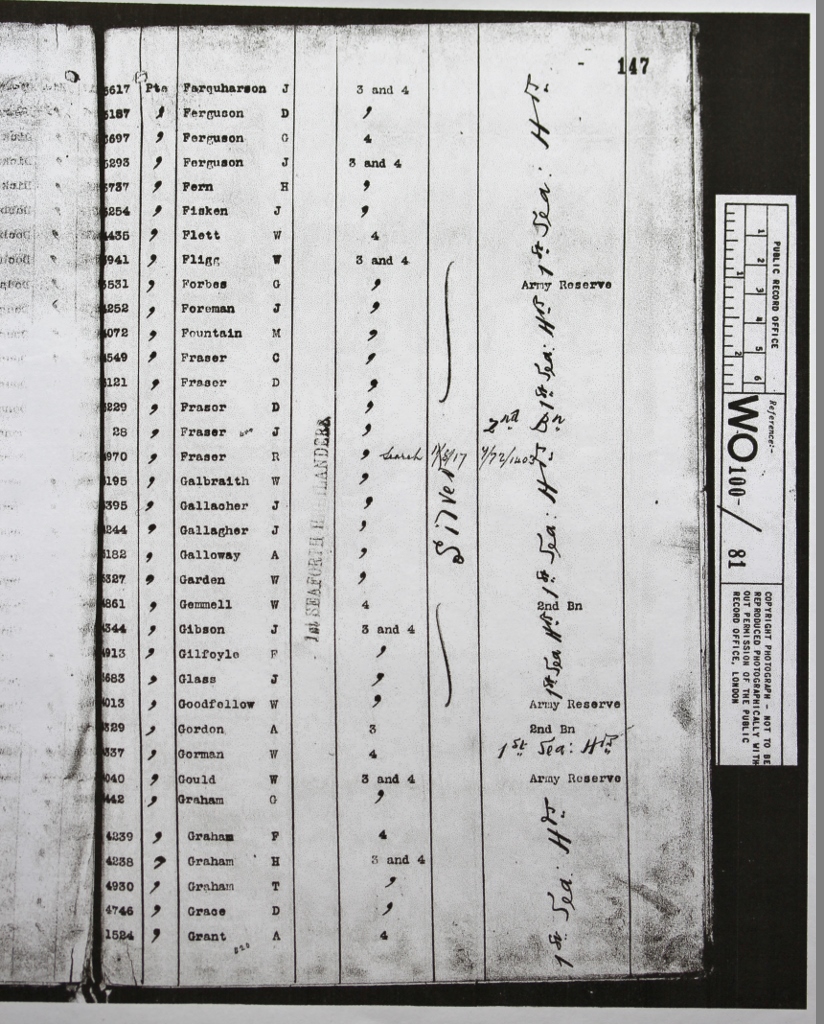 147
5617 Pte Farquharson J 3 and 4
5187 " Ferguson D "
5697 " Ferguson G 4
5293 " Ferguson J 3 and 4
5737 " Fern H "
5254 " Fisken J "
4435 " Flett W 4
3941 " Fligg W 3 and 4
5531 " Forbes G " Army Reserve
5252 " Foreman J "
4072 " Fountain M "
4549 " Fraser C "
5121 " Fraser D "
5229 " Fraser D "
28 " Fraser J " 2nd Bn
4970 " Fraser R " Search
5195 " Galbraith W "
5395 " Gallacher J "
4244 " Gallagher J "
5182 " Galloway A "
5327 " Garden W "
4861 " Gemmell W 4 2nd Bn
4344 " Gibson J 3 and 4
4913 " Gilfoyle F "
5683 " Glass J "
4013 " Goodfellow W " Army Reserve
5329 " Gordon A 3 2nd Bn
5337 " Gorman W 4 1st Sea: Hrs
4040 " Gould W 3 and 4 Army Reserve
442 " Graham G "
4239 " Graham F 4
4238 " Graham H 3 and 4
4930 " Graham T "
4746 " Grace D "
1524 " Grant A 4
1st SEAFORTH HIGHLANDERS
Silver
1st Sea: Hrs
1st Sea: Hrs
1st Sea: Hrs
1st Sea Hrs
1st Sea: Hrs
PUBLIC RECORD OFFICE
1 2 3 4 5 6
1 2
Reference:-
WO 100-/ 81
COPYRIGHT PHOTOGRAPH - NOT TO BE
REPRODUCED PHOTOGRAPHICALLY WITH-
OUT PERMISSION OF THE PUBLIC
RECORD OFFICE, LONDON